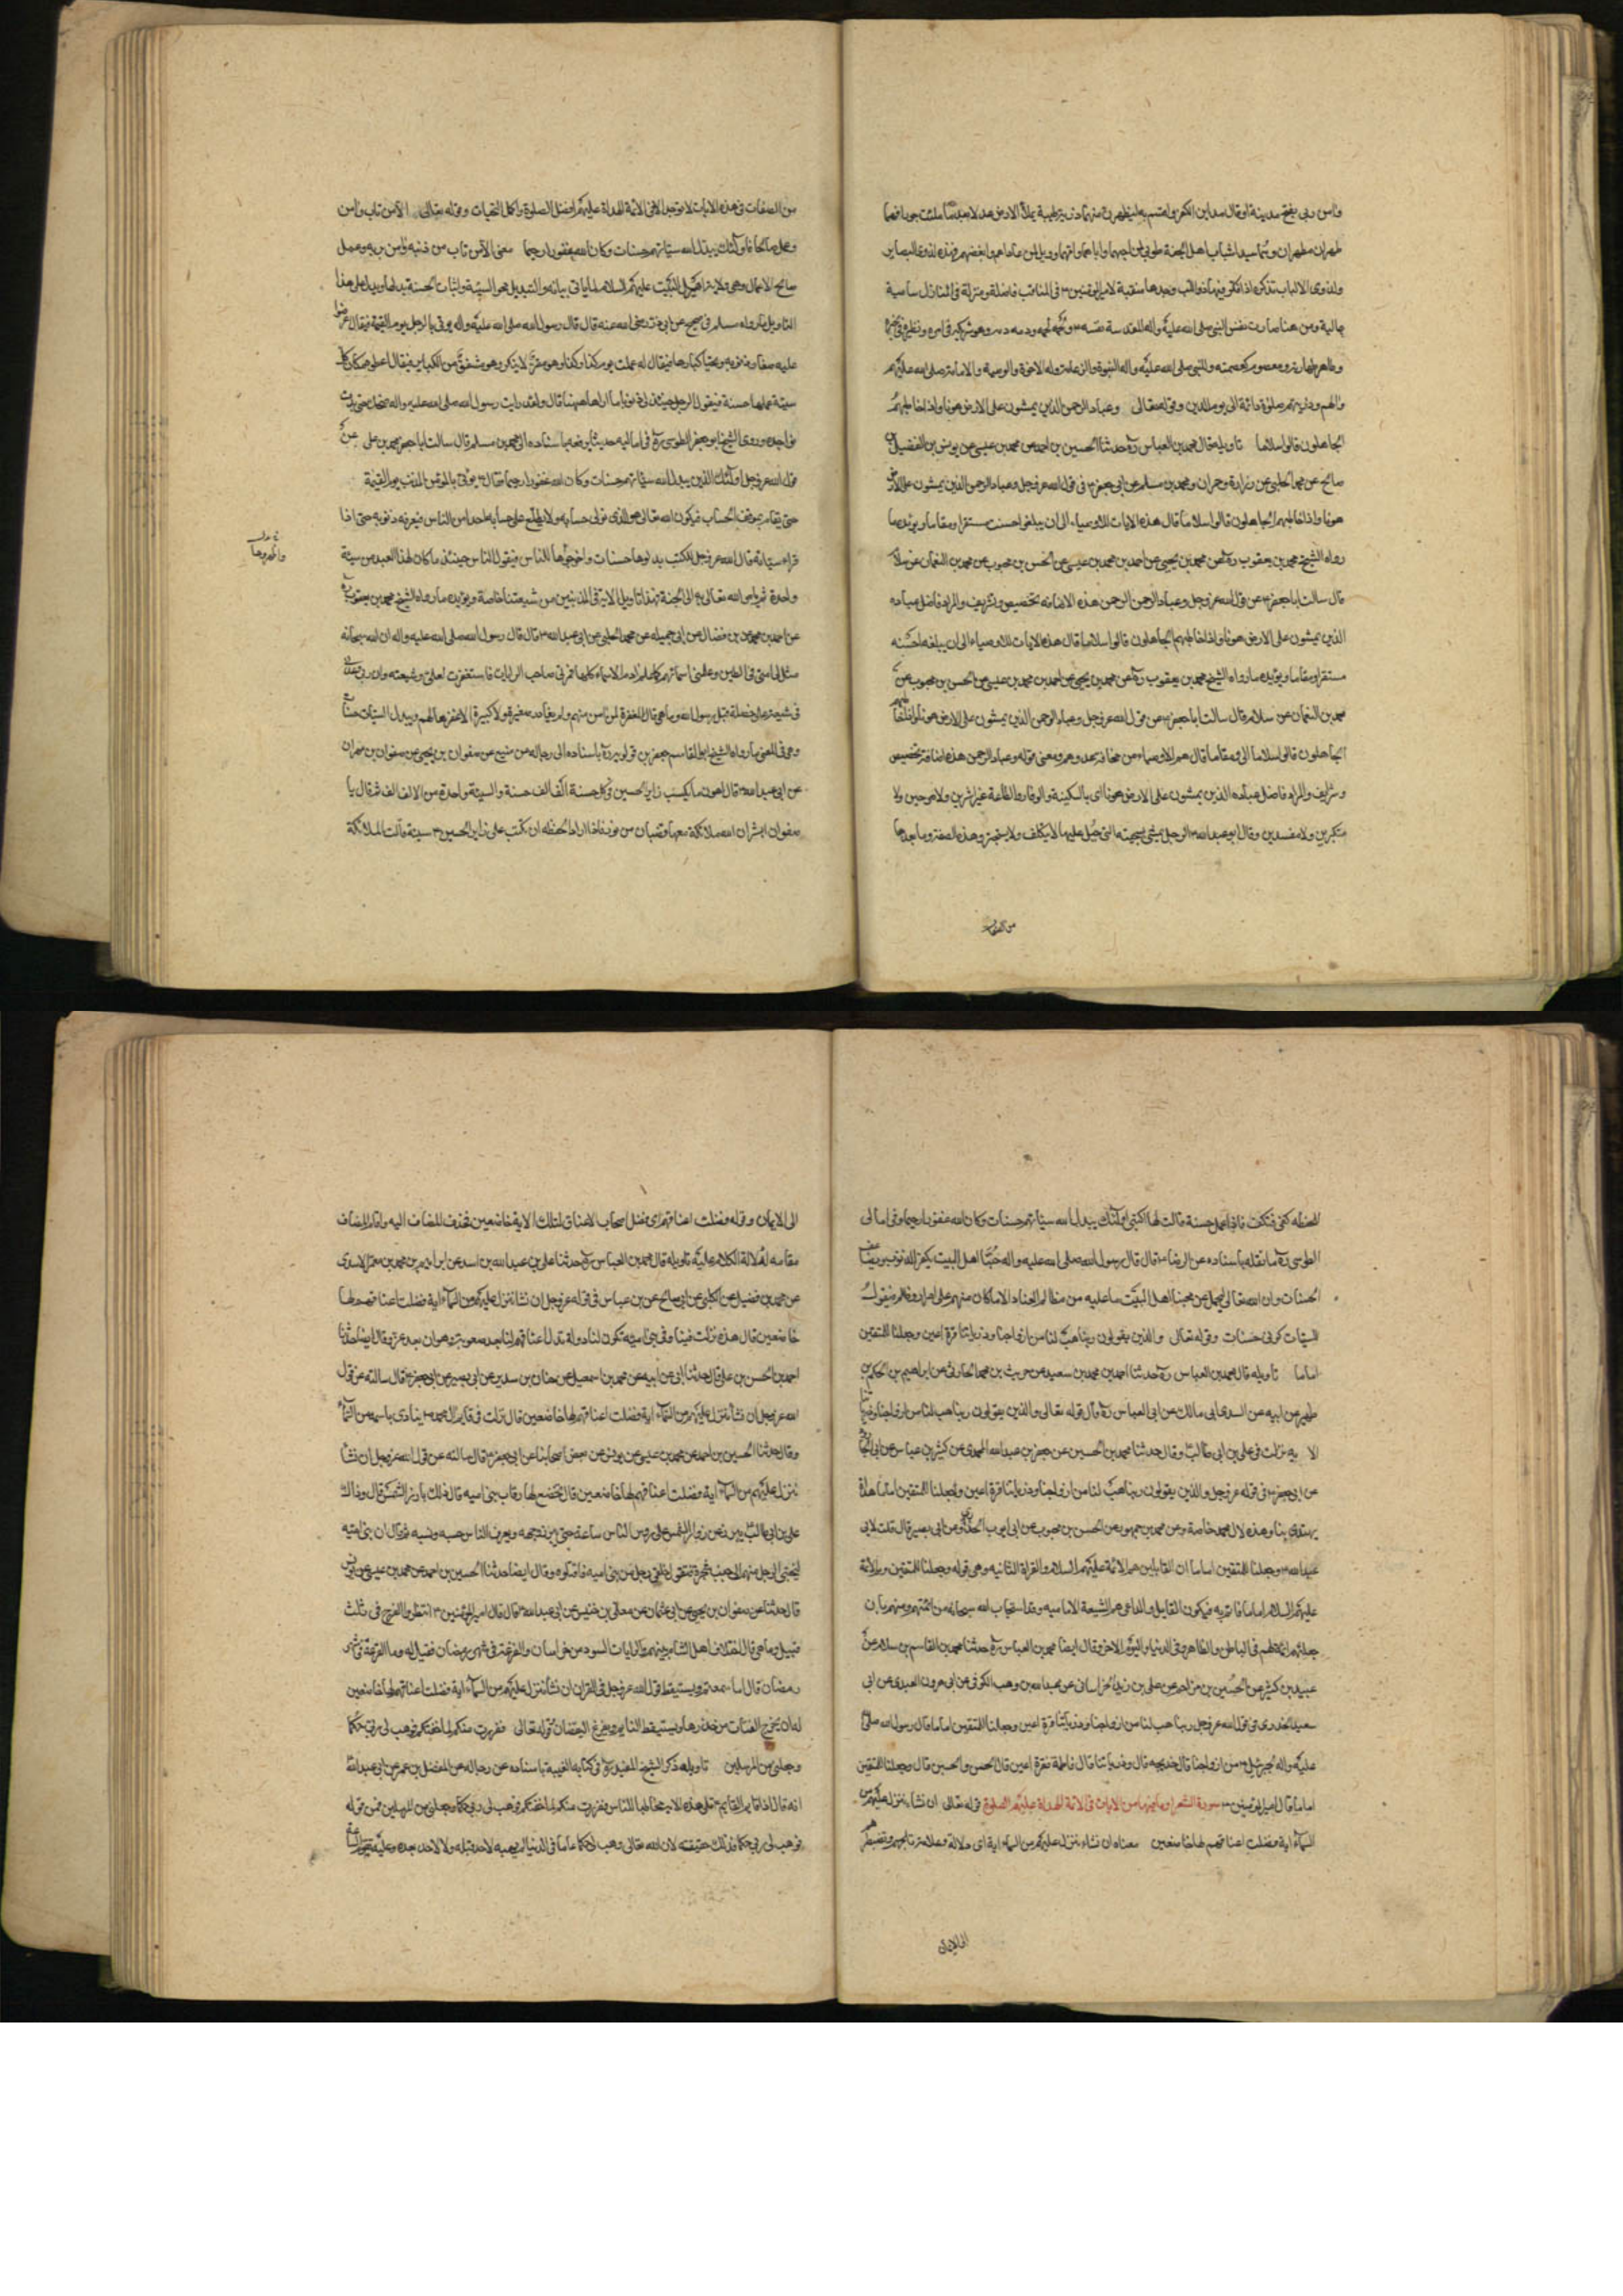 طهران مطهران وهما سيدا شباب اهل الجنة طوبى لمن احبهما واباهما وامهما وويل لمن عاداهم وابغضهم فهذه لذوى البصاير
ولذوى الالباب تذكره اذا فكر فيها ذو اللب وجدها منقبة لامير المؤمنين ع فى المناقب فاضلة ومنزلة فى المنازل سامية
عالية ومن هنا صارت نفس النبى صلى الله عليه واله المقدسة نفسه ولحمه لحمه ودمه دمه وهو شريكه فى امره
وطاهر كطهارته ومعصوم كعصمته وللنبى صلى الله عليه واله النبوة والزعامة وله الاخوة والوصية والامامة صلى الله عليهما
والهما وذريتهم صلوة دائمة الى يوم الدين وقوله تعالى وعباد الرحمن الذين يمشون على الارض هونا واذا خاطبهم
الجاهلون قالوا سلاما تاويله قال محمد بن العباس ره حدثنا الحسين بن احمد عن محمد بن عيسى عن يونس عن المفضل بن
صالح عن محمد الحلبى عن زرارة وحمران ومحمد بن مسلم عن ابى جعفر ع فى قول الله عز وجل وعباد الرحمن الذين يمشون على الارض
هونا واذا خاطبهم الجاهلون قالوا سلاما قال هذه الايات للاوصياء الى ان يبلغوا حسنت مستقرا ومقاما ويؤيده ما
رواه الشيخ محمد بن يعقوب ره عن محمد بن يحيى عن احمد بن محمد بن عيسى عن الحسن بن محبوب عن محمد بن النعمان عن سلام
قال سالت ابا جعفر ع عن قول الله عز وجل وعباد الرحمن الرحمن هذه الاضافه تخصيص وتشريف والمراد فاضل عباده
الذين يمشون على الارض هونا واذا خاطبهم الجاهلون قالوا سلاما قال هذه الايات للاوصياء الى ان يبلغه احسنه
مستقرا ومقاما ويؤيده ما رواه الشيخ محمد بن يعقوب ره عن محمد بن يحيى عن احمد بن محمد بن عيسى عن الحسن بن محبوب عن
محمد بن النعمان عن سلام قال سالت ابا جعفر ع عن قول الله عز وجل وعباد الرحمن الذين يمشون على الارض هونا واذا خاطبهم
الجاهلون قالوا سلاما الى ومقاما قال هم الاوصياء من مخافة عدوهم ومعنى قوله وعباد الرحمن هذه اضافة تخصيص
وتشريف والمراد فاضل عباده الذين يمشون على الارض هونا اى بالسكينة والوقار والطاعة غير اشرين ولا مرحين ولا
متكبرين ولا مفسدين وقال ابو عبد الله ع الرجل يمشى بسجيته التى جبل عليها لا يتكلف ولا يتبختر وهذه الصفة وما بعدها
من الصفات
من الصفات فى هذه الايات لا توجد الا فى الائمة الهداة عليهم افضل الصلوة واكمل التحيات وقوله تعالى الا من تاب وامن
وعمل صالحا فاولئك يبدل الله سيئاتهم حسنات وكان الله غفورا رحيما معنى الا من تاب من ذنبه وامن بربه وعمل
صالح الاعمال وهى ولاية اهل البيت عليهم السلام لما ياتى بيانه والتبديل محو السيئة واثبات الحسنة بدلها ويدل على هذا
التاويل ما رواه مسلم فى صحيحه عن ابى ذر رضى الله عنه قال قال رسول الله صلى الله عليه واله يوتى بالرجل يوم القيمة فيقال اعرضوا
عليه صغار ذنوبه ونحيا كبارها فيقال له عملت يوم كذا وكذا وكذا وهو مقر لا ينكر وهو مشفق من الكباير فيقال اعطوه مكان كل
سيئة عملها حسنة فيقول الرجل حينئذ لى ذنوبا ما اراها ههنا قال ولقد رايت رسول الله صلى الله عليه واله ضحك حتى بدت
نواجذه وروى الشيخ ابو جعفر الطوسى ره فى اماليه حديثا يرفعه باسناده الى محمد بن مسلم قال سالت ابا جعفر محمد بن على عن
قول الله عز وجل اولئك الذين يبدل الله سيئاتهم حسنات وكان الله غفورا رحيما فقال ع يوتى بالمؤمن المذنب يوم القيمة
حتى يقام بموقف الحساب فيكون الله تعالى هو الذى تولى حسابه ولا يطلع على حسابه احدا من الناس فيعرفه ذنوبه حتى اذا
قراء سيئاته قال الله عز وجل للكتبه بدلوها حسنات واخرجوها للناس فيقول الناس حينئذ ما كان لهذا العبد من سيئة
واحدة ثم يامر الله تعالى به الى الجنة فهذا تاويل الاية فى المذنبين من شيعتنا خاصة ويؤيده ما رواه الشيخ محمد بن يعقوب ره
عن احمد بن محمد بن فضال عن ابى جميله عن محمد الحلبى عن ابى عبد الله ع قال قال رسول الله صلى الله عليه واله ان الله سبحانه
مثل لى امتى فى الطين وعلمنى اسمائهم كما علم ادم الاسماء كلها فمر بى صاحب الرايات فاستغفرت لعلى وشيعته وان ربى وعدنى
فى شيعة على خصلة قيل يا رسول الله وما هى قال المغفرة لمن امن منهم وان لا يغادر صغيرة ولا كبيرة الا غفرها لهم ويبدل السيئات حسنات
وفى هذا المعنى ما رواه الشيخ ابو القاسم جعفر بن قولويه ره باسناده الى رجاله عن منيع عن صفوان بن يحيى عن صفوان بن مهران
عن ابى عبد الله ع قال اهون ما يكسب زاير الحسين ع فى كل حسنة الف الف حسنة والسيئة واحدة من الالف الف ثم قال يا
صفوان ابشر ان لله ملائكة معها قضبان من نور فاذا اراد الحفظه ان تكتب على زاير الحسين ع سيئة قالت الملائكة
للحفظه كفى فتكف فاذا عمل حسنة قالت لها اكتبى اولئك يبدل الله سيئاتهم حسنات وكان الله غفورا رحيما وفى امالى
الطوسى ره ما نقله باسناده عن الرضا ع قال قال رسول الله صلى الله عليه واله حبنا اهل البيت يكفر الذنوب ويضاعف
الحسنات وان الله تعالى ليحمل عن محبنا اهل البيت ما عليه من مظالم العباد الا ما كان منهم على اصرار وظلم فيقول
للسيئات كونى حسنات وقوله تعالى والذين يقولون ربنا هب لنا من ازواجنا وذرياتنا قرة اعين وجعلنا للمتقين
اماما تاويله قال محمد بن العباس ره حدثنا احمد بن محمد بن سعيد عن حريث بن محمد الحارثى عن ابراهيم بن الحكم بن
ظهير عن ابيه عن السدى ابى مالك عن ابى العباس ره قال قوله تعالى والذين يقولون ربنا هب لنا من ازواجنا وذرياتنا
الاية نزلت فى على بن ابى طالب وقال حدثنا محمد بن الحسين عن جعفر بن عبد الله المحمدى عن كثير بن عياش عن ابى الجارود
عن ابى جعفر ع فى قوله عز وجل والذين يقولون ربنا هب لنا من ازواجنا وذرياتنا قرة اعين واجعلنا للمتقين اماما اى هداة
يهتدى بنا وهذه لال محمد خاصة وعن محمد بن جمهور عن الحسن بن محبوب عن ابى ايوب الخزاز عن ابى بصير قال قلت لابى
عليهم السلام اماما فاتم به فيكون القايل والداعى هم الشيعة الاماميه وقد استجاب الله سبحانه من ائمتهم ومنهم بان
جعلهم ائمة لهم فى الباطن والظاهر وفى الدنيا واليوم الاخر وقال ايضا محمد بن العباس ره حدثنا محمد بن القاسم بن سلام عن
عبيد بن كثير عن الحسين بن مزاحم عن على بن زيد الخراسانى عن عبد الله بن وهب الكوفى عن ابى هرون العبدى عن ابى
سعيد الخدرى فى قول الله عز وجل ربنا هب لنا من ازواجنا وذرياتنا قرة اعين وجعلنا للمتقين اماما قال رسول الله صلى الله
عليه واله لجبرئيل ع من ازواجنا قال خديجه قال وذرياتنا قال فاطمة قرة اعين قال الحسن والحسين قال وجعلنا للمتقين
اماما قال امير المؤمنين ع سورة الشعرا وما فيها من الايات فى الائمة الهداة عليهم الصلوة قوله تعالى ان نشاء ننزل عليهم من
السماء اية فضلت اعناقهم لها خاضعين معناه ان نشاء ننزل عليهم من السماء اية اى دلالة وعلامة تلجيهم وتضطرهم
الى الايمان
الى الايمان وقوله وفضلت اعناقهم اى فضل اصحاب الاعناق لتلك الاية خاضعين فحذف المضاف اليه واقام المضاف
مقامه لدلالة الكلام عليه تاويله قال محمد بن العباس ره حدثنا على بن عبد الله بن اسد عن ابراهيم بن محمد عن محمد بن معمر الاسدى
عن محمد بن فضيل عن الكلبى عن ابى صالح عن بن عباس فى قوله عز وجل ان نشا ننزل عليهم من السماء اية فضلت اعناقهم لها
خاضعين قال هذه نزلت فينا وفى بنى اميه تكون لنا دولة تذل اعناقهم لنا بعد صعوبة وهوان بعد عز وقال ايضا حدثنا
احمد بن الحسن بن على قال حدثنا ابى عن ابيه عن محمد بن اسمعيل عن حنان بن سدير عن ابى بصير عن ابى جعفر ع قال سالته عن قول
الله عز وجل ان نشا ننزل عليهم من السماء اية فضلت اعناقهم لها خاضعين قال نزلت فى قايم ال محمد ع ينادى باسمه من السماء
وقال حدثنا الحسين بن احمد عن محمد بن عيسى عن يونس عن بعض اصحابنا عن ابى جعفر ع قال سالته عن قول الله عز وجل ان نشا
ننزل عليهم من السماء اية فضلت اعناقهم لها خاضعين قال تخضع لها رقاب بنى اميه قال ذلك بارز الشمس قال وذاك
على بن ابى طالب يبرز عند زوال الشمس على روس الناس ساعة حتى يبرز وجهه ويعرف الناس حسبه ونسبه ثم قال ان بنى اميه
ليختبى الرجل منهم الى جنب شجرة فتقول خلفى رجل من بنى اميه فاقتلوه وقال ايضا حدثنا الحسين بن احمد عن محمد بن عيسى عن يونس
قال حدثنا صفوان بن يحيى عن ابى عثمان عن معلى بن خنيس عن ابى عبد الله ع قال قال امير المؤمنين ع انتظروا الفرج فى ثلث
فقيل وما هى قال اختلاف اهل الشام بينهم والرايات السود من خراسان والفزعة فى شهر رمضان فقيل له وما الفزعة فى شهر
رمضان قال اما سمعتم قول الله عز وجل فى القران ان نشا ننزل عليهم من السماء اية فضلت اعناقهم لها خاضعين
وجعلنى من المرسلين تاويله ذكر الشيخ المفيد ره فى كتابه الغيبة باسناده عن رجاله عن المفضل بن عمر عن ابى عبد الله
انه قال اذا قام القايم ع تلى هذه الاية مخاطبا للناس ففررت منكم لما خفتكم فوهب لى ربى حكما وجعلنى من المرسلين